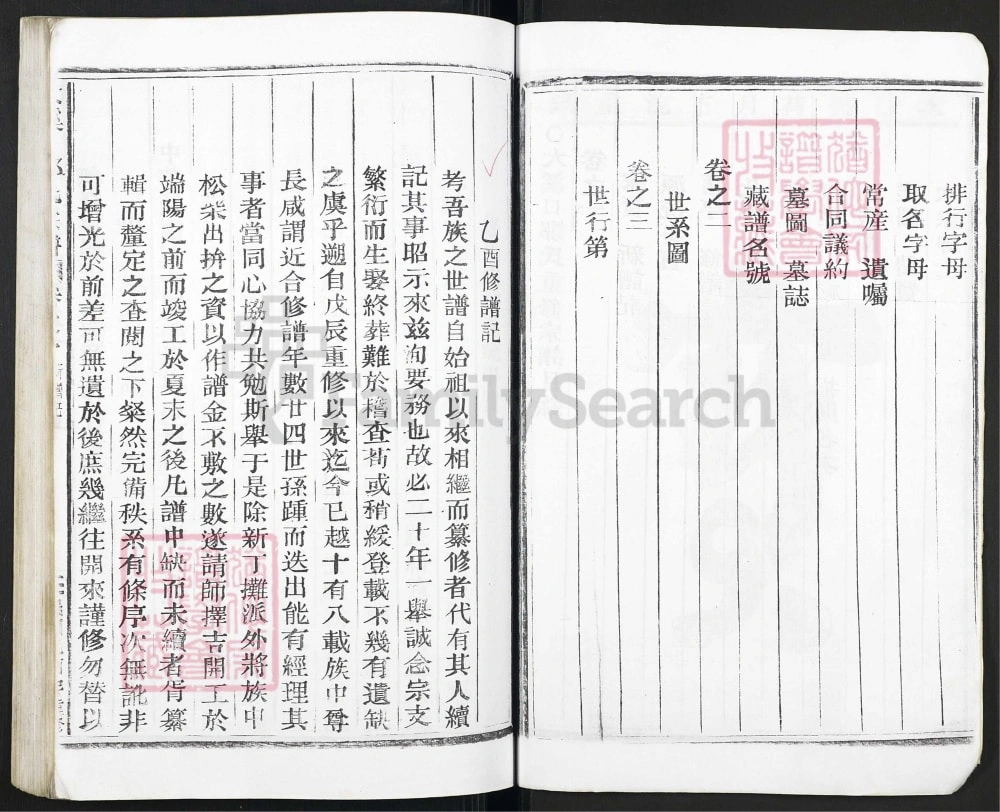 排行字母
取名字母
常産　遺囑
合同議約
墓圖　墓誌
藏譜名號
卷之二
世系圖
卷之三
世行第
乙酉修譜記
考吾族之世譜自始祖以來相繼而纂修者代有其人續
記其事昭示來兹洵要務也故必二十年一舉誠念宗支
繁衍而生娶終葬難於稽查茍或稍緩登載不幾有遺缺
之虞乎遡自戊辰重修以來迄今已越十有八載族中尊
長咸謂近合修譜年數廿四世孫踵而迭出能有經理其
事者當同心協力共勉斯舉于是除新丁攤派外將族中
松柴出拚之資以作譜金不敷之數遂請師擇吉開工於
端陽之前而竣工於夏末之後凡譜中缺而未續者胥纂
輯而釐定之查閱之下粲然完備秩系有條序次無訛非
可增光於前差可無遺於後庶幾繼往開來謹修勿替以
FamilySearch